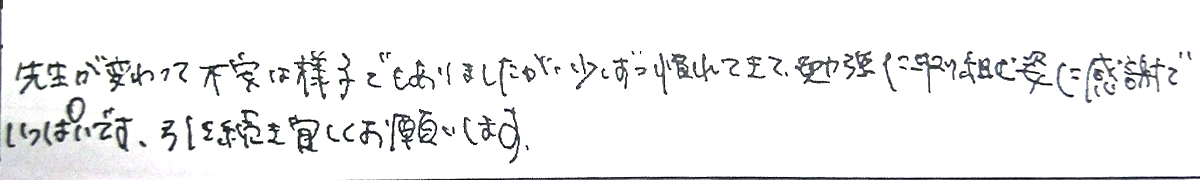 先生が変わって不安な様子でもありましたが、少しずつ慣れてきて、勉強に取り組む姿に感謝で
いっぱいです、引き続き宜しくお願いします。